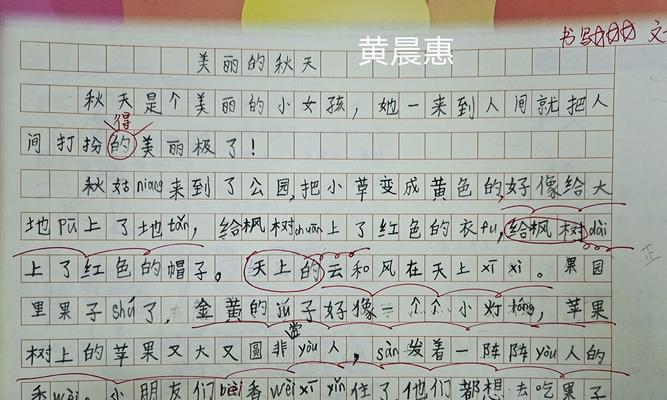 黄晨惠
书写 文
美丽的秋天
秋天是个美丽的小女孩，她一来到人间就把人
得
间打扮的美丽极了！
秋姑niang来到了公园，把小草变成黄色的，好像给大
地pū上了地tǎn，给枫树chuān上了红色的衣fu，给枫树dài
上了红色的帽子。天上的云和风在天上xī xì。果园
正
里果子shú了，金黄的jú子好像一个个小灯lóng，苹果
常
树上的苹果又大又圆非yòu人，sàn发着一阵阵yòu人的
香wèi。小朋友们bèi香wèi xī yǐn住了，他们都想去吃果子